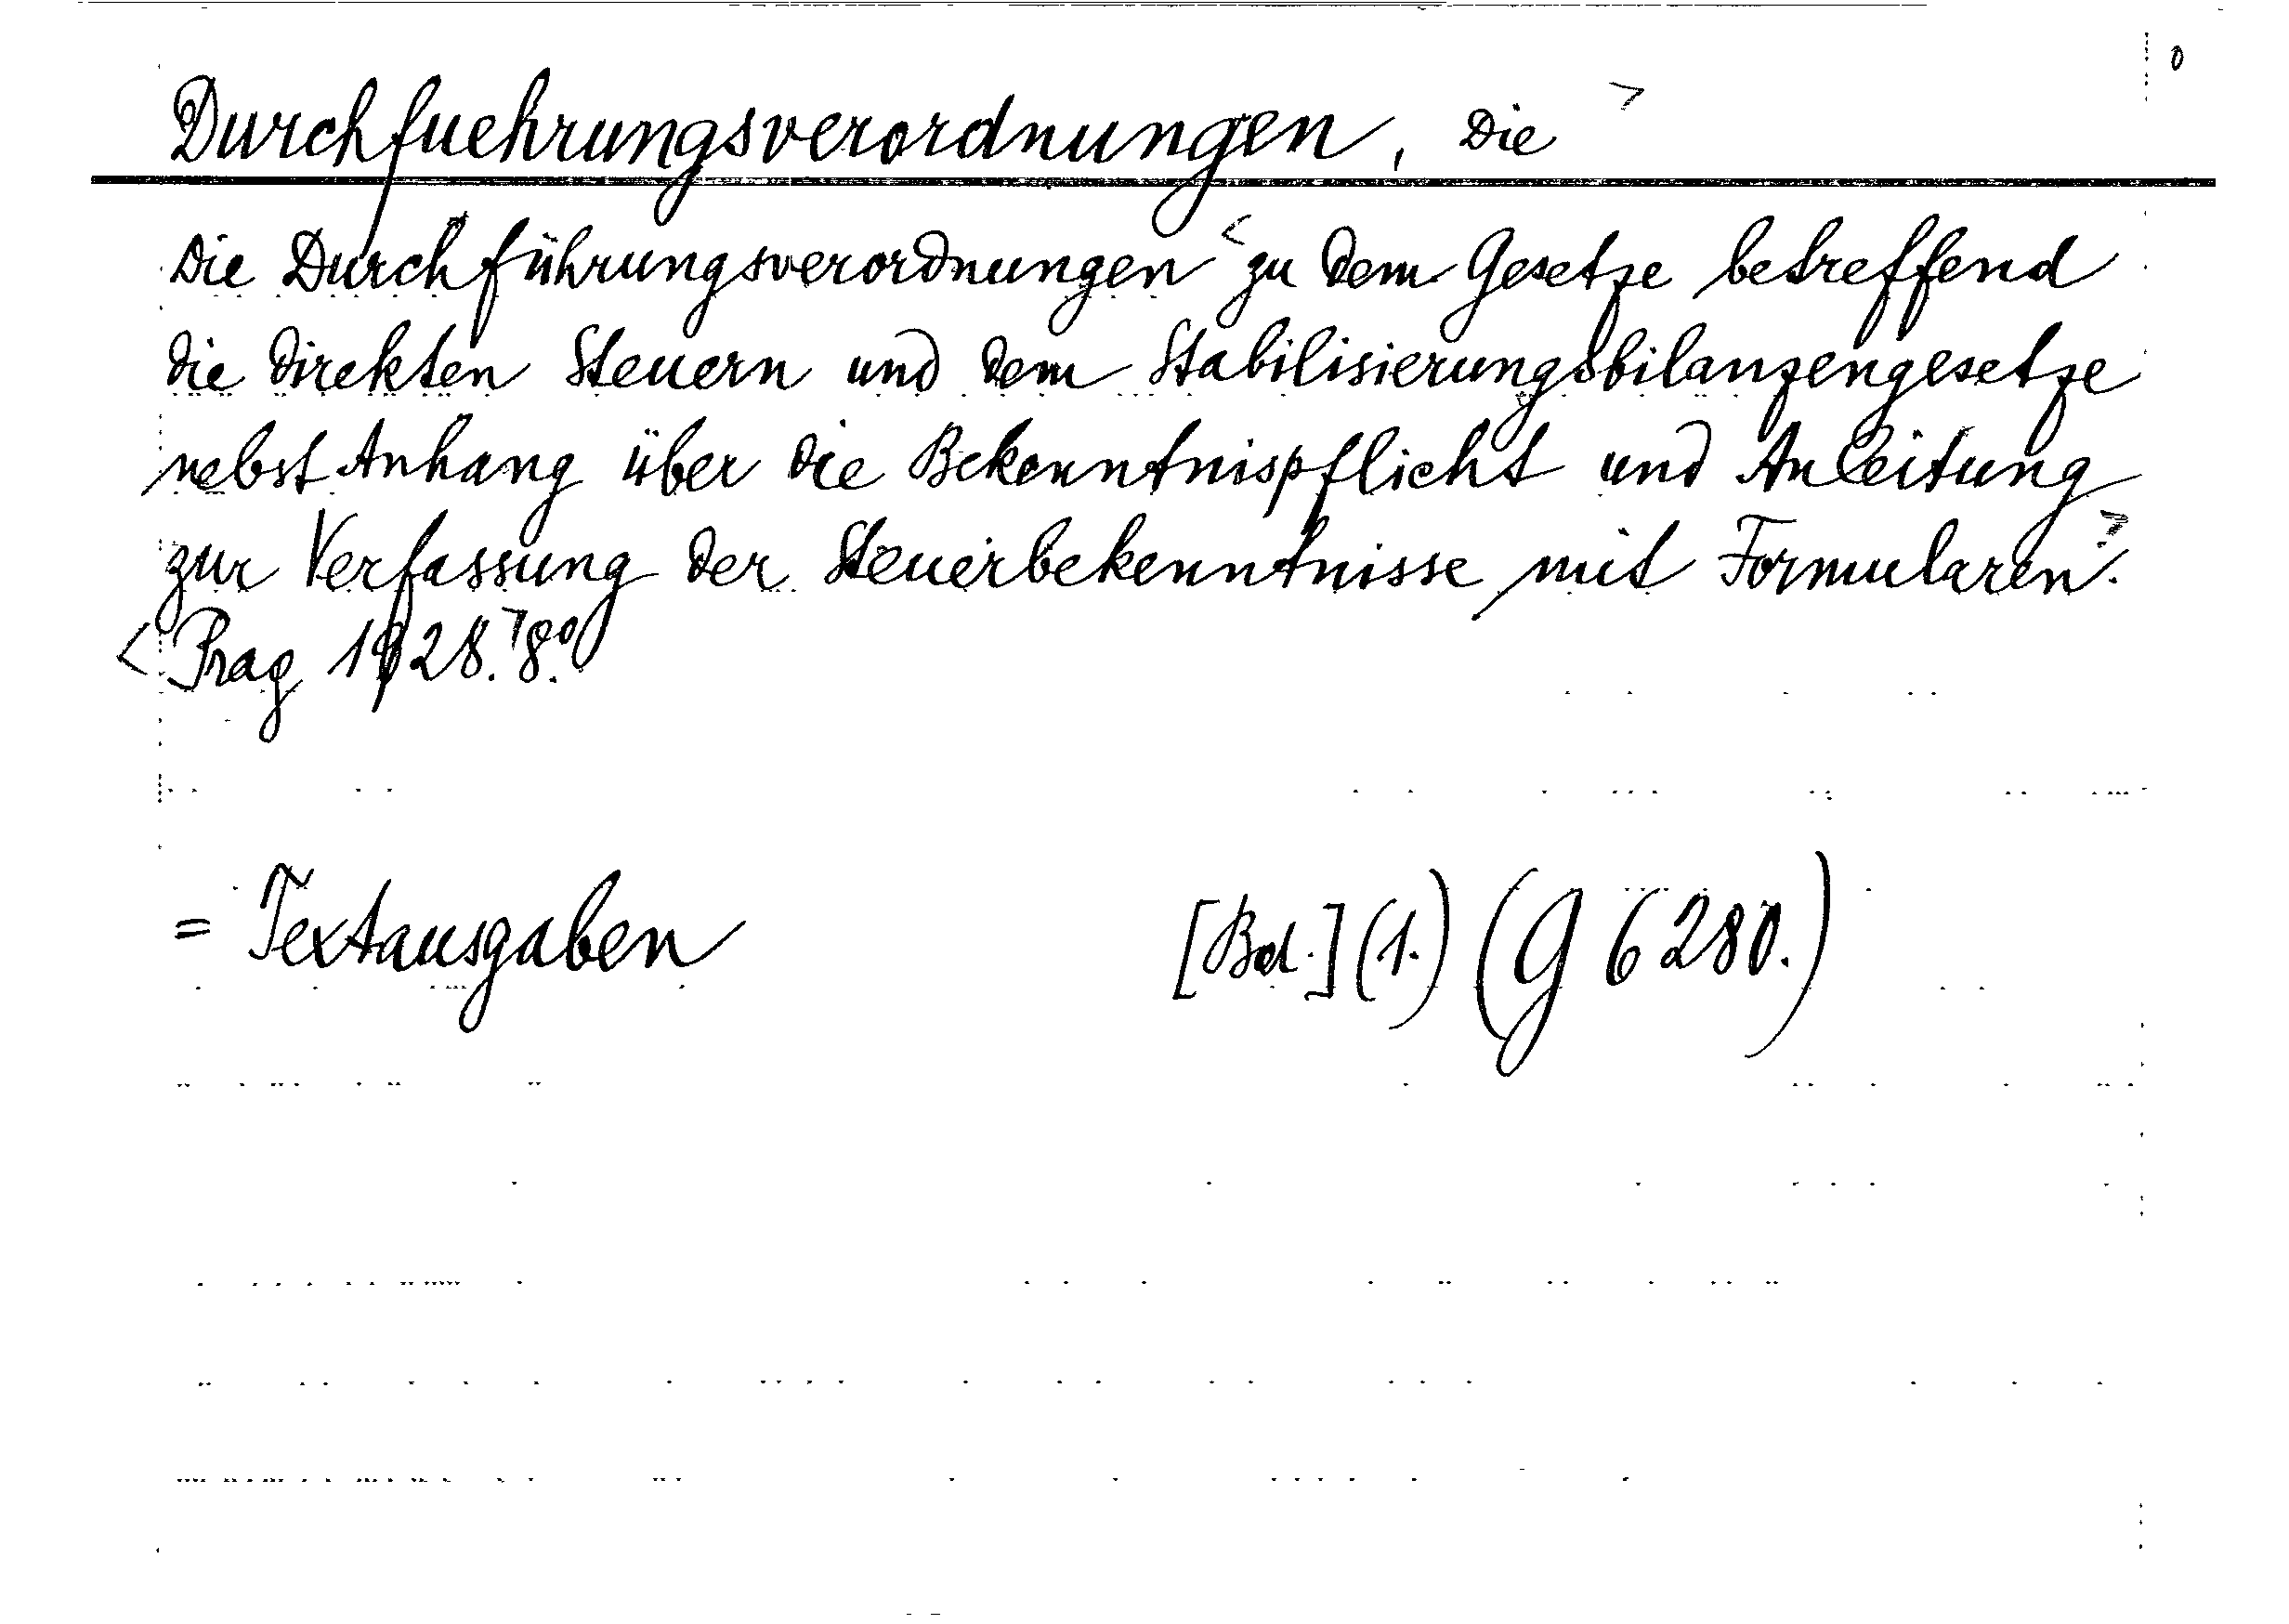 Durchfuehrungsverordnungen, Die >
Die Durchführungsverordnungen < zu dem Gesetze betreffend
die direkten Steuern und dem Stabilisierungsbilanzengesetze
nebst Anhang über die Bekenntnispflicht und Anleitung
zur Verfassung der Steuerbekenntnisse mit Formularen. >
< Prag 1928. > 8.º
= Textausgaben [Bd.] (1.) (G 6280.)